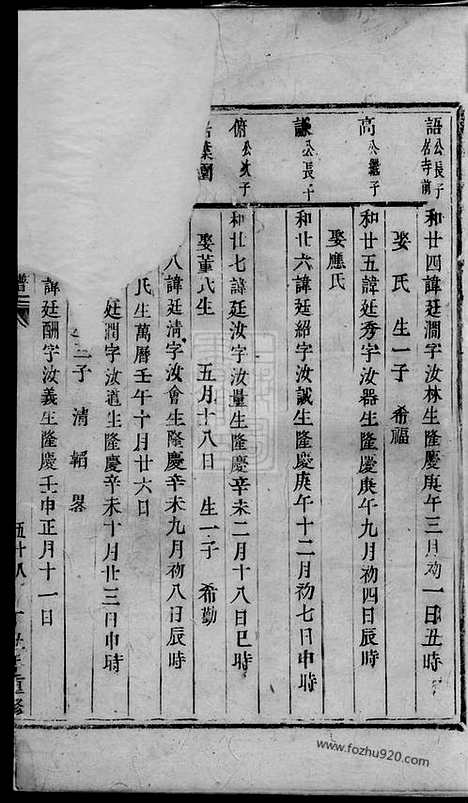 語公長子
住寺前
和廿四諱廷澗字汝林生隆慶庚午三月初一日丑時
娶 氏 生一子 希福
高公繼子
和廿五諱廷秀字汝器生隆慶庚午九月初四日辰時
娶應氏
謙公長子
和廿六諱廷紹字汝誠生隆慶庚午十二月初七日申時
俯公次子
和廿七諱廷汝字汝量生隆慶辛未二月十八日巳時
娶董氏生 五月十八日 生一子 希勤
八諱廷清字汝會生隆慶辛未九月初八日辰時
氏生萬曆壬午十月廿六日
廷潤字汝道生隆慶辛未十月廿三日申時
二子 清 韜
諱廷酬字汝義生隆慶壬申正月十一日
譜
五十八
重修
www.fozhu920.com